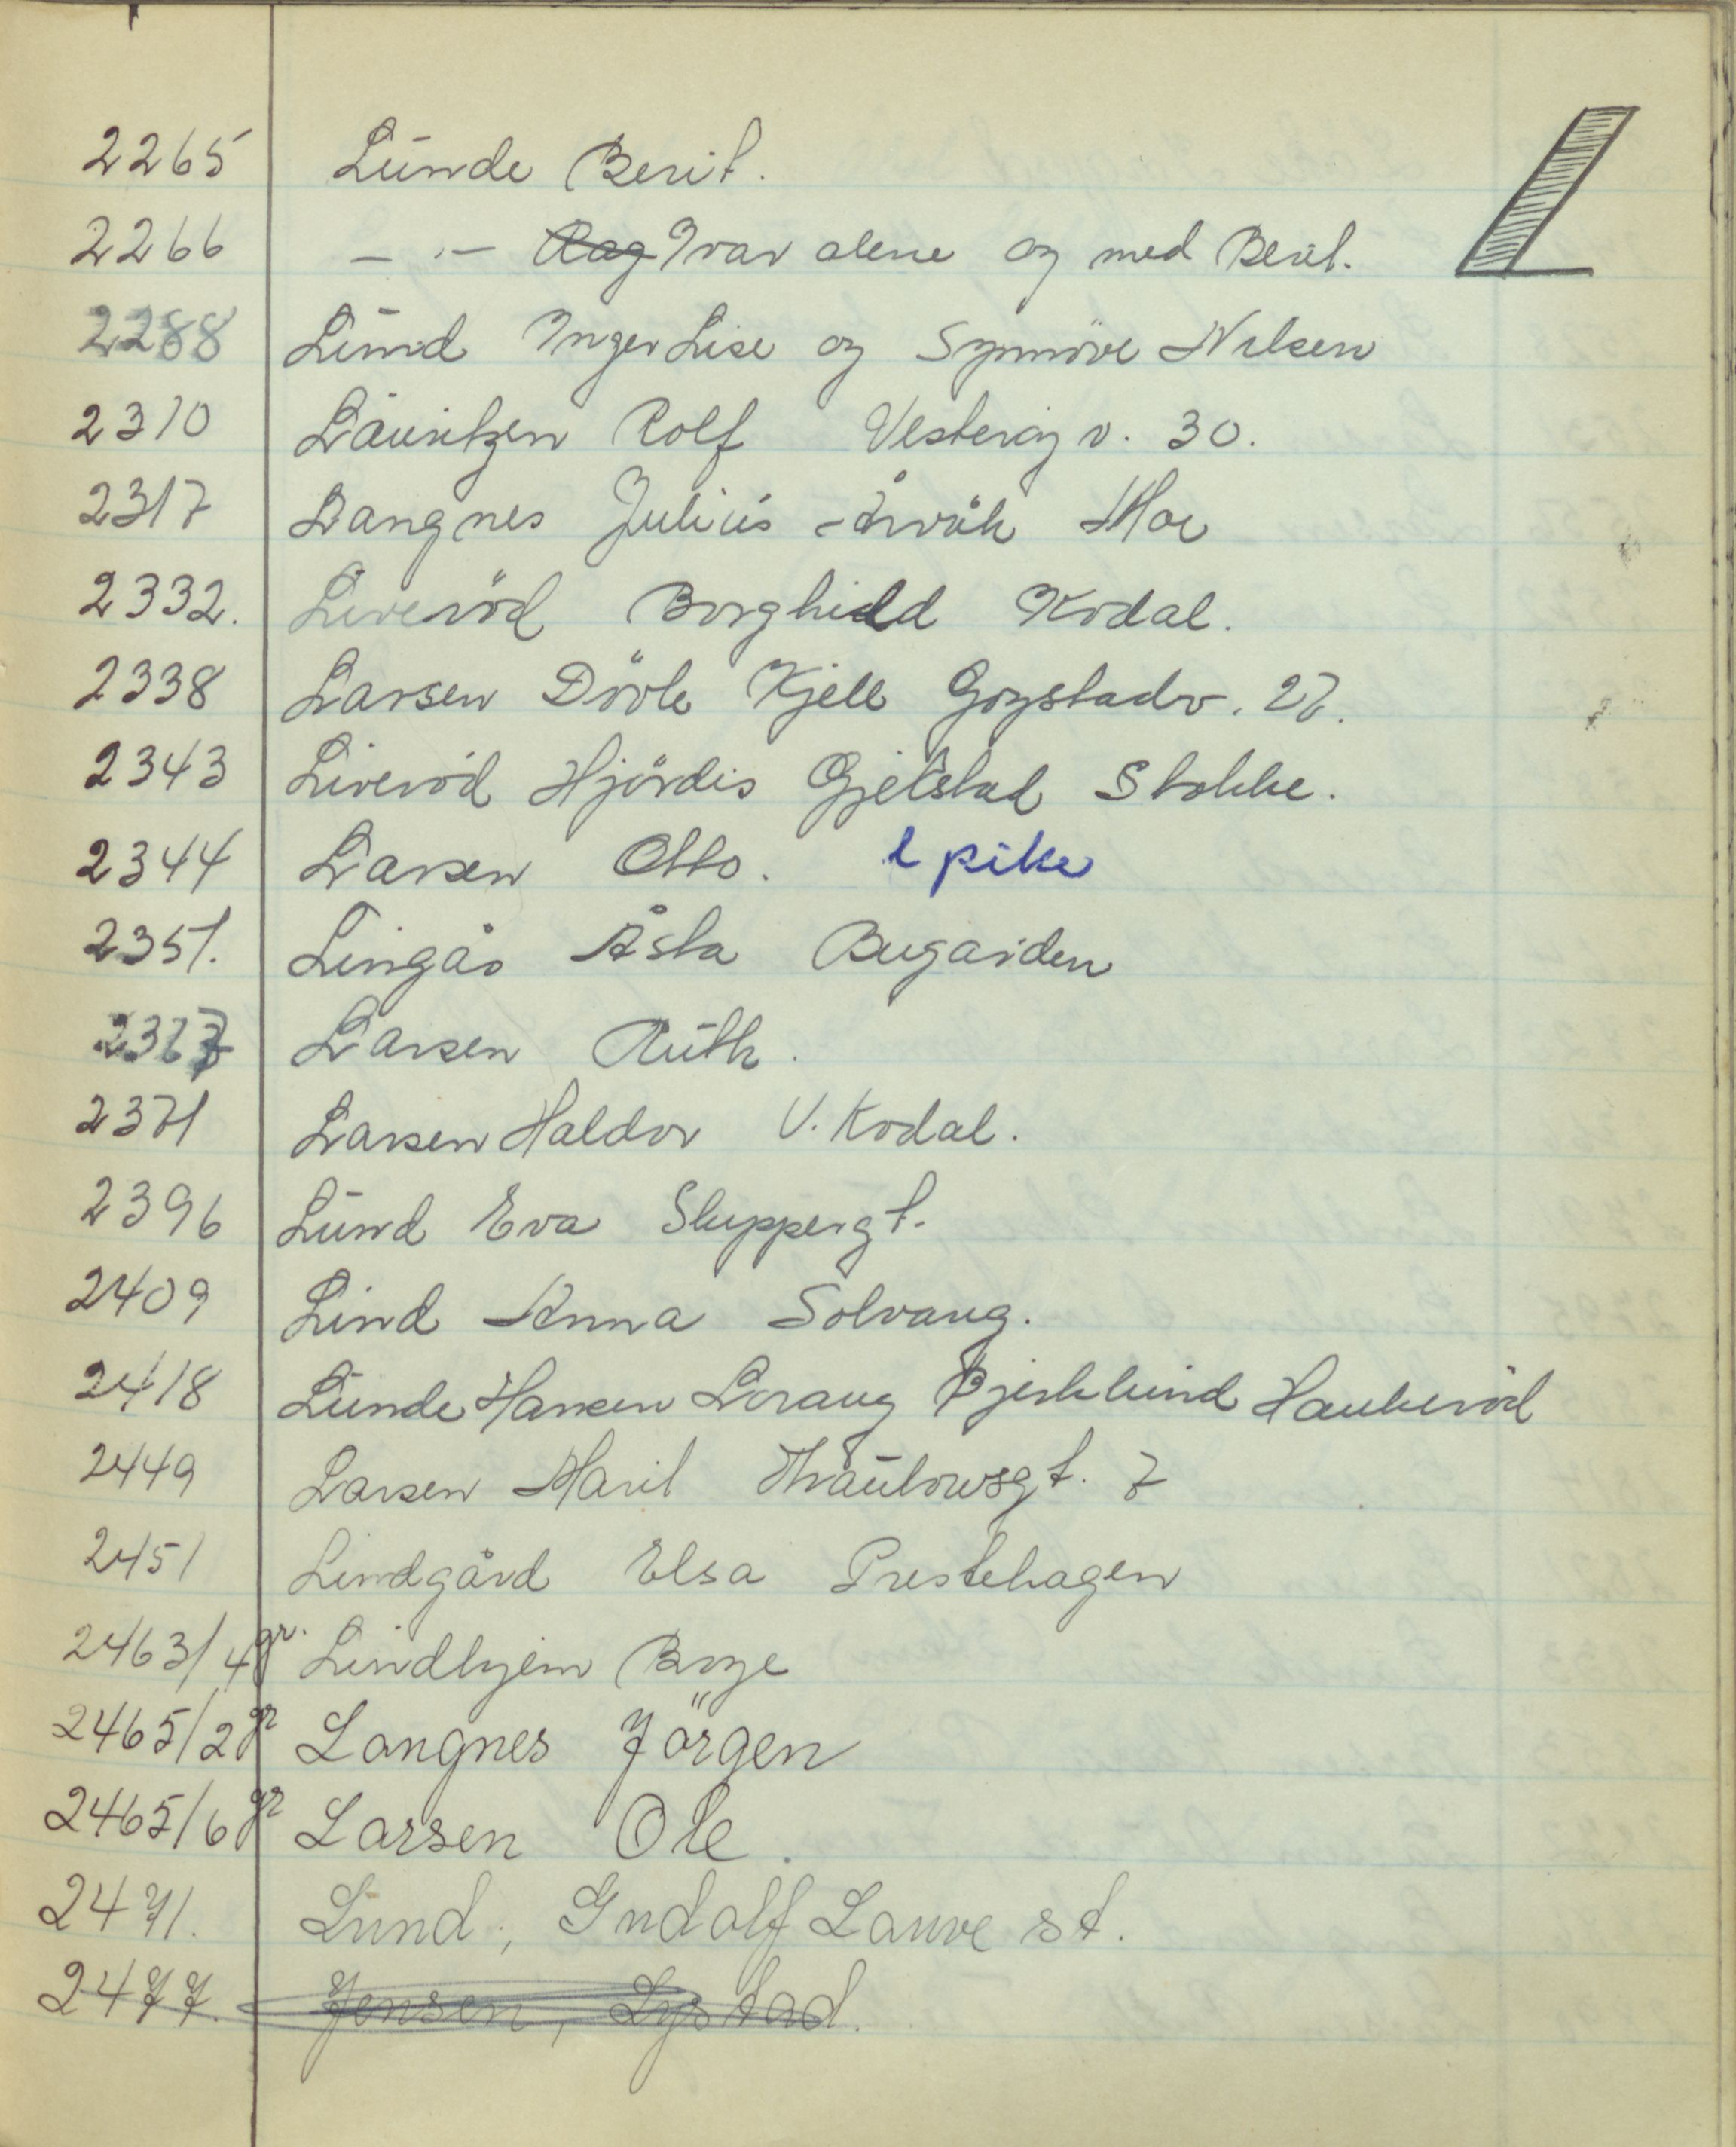 L
2265 Lunde Berit.
2266 — " — Rag Ivar alene og med Berit.
2288 Lund Inger Lise og Synnöve Nilsen
2310 Lauritzen Rolf Vesteröy v. 30.
2317 Langnes Julius Moe
2332. Liveröd Borghild Kodal.
2338 Larsen Dövle Kjell Gogstadv. 27.
2343 Liveröd Hjördis Gjelstad Stokke.
2344 Larsen Otto. l pike
2351. Lingås Åsta Bugården
Larsen Ruth.
2371 Larsen Haldor V. Kodal.
2396 Lund Eva Skippergt.
2409 Lind Anna Solvang.
2418 Lunde Hansen Lorang Bjerklund Haukeröd
2449 Larsen Marit Thaulowsgt. 7
2451 Lindgård Elsa Prestehagen
2463/4 gr. Lindhjem Boye
2465/2 gr Langnes Jörgen
2465/6 gr Larsen Ole.
2471. Lund, Gudolf Lauve st.
2477. Jensen, Lystad.